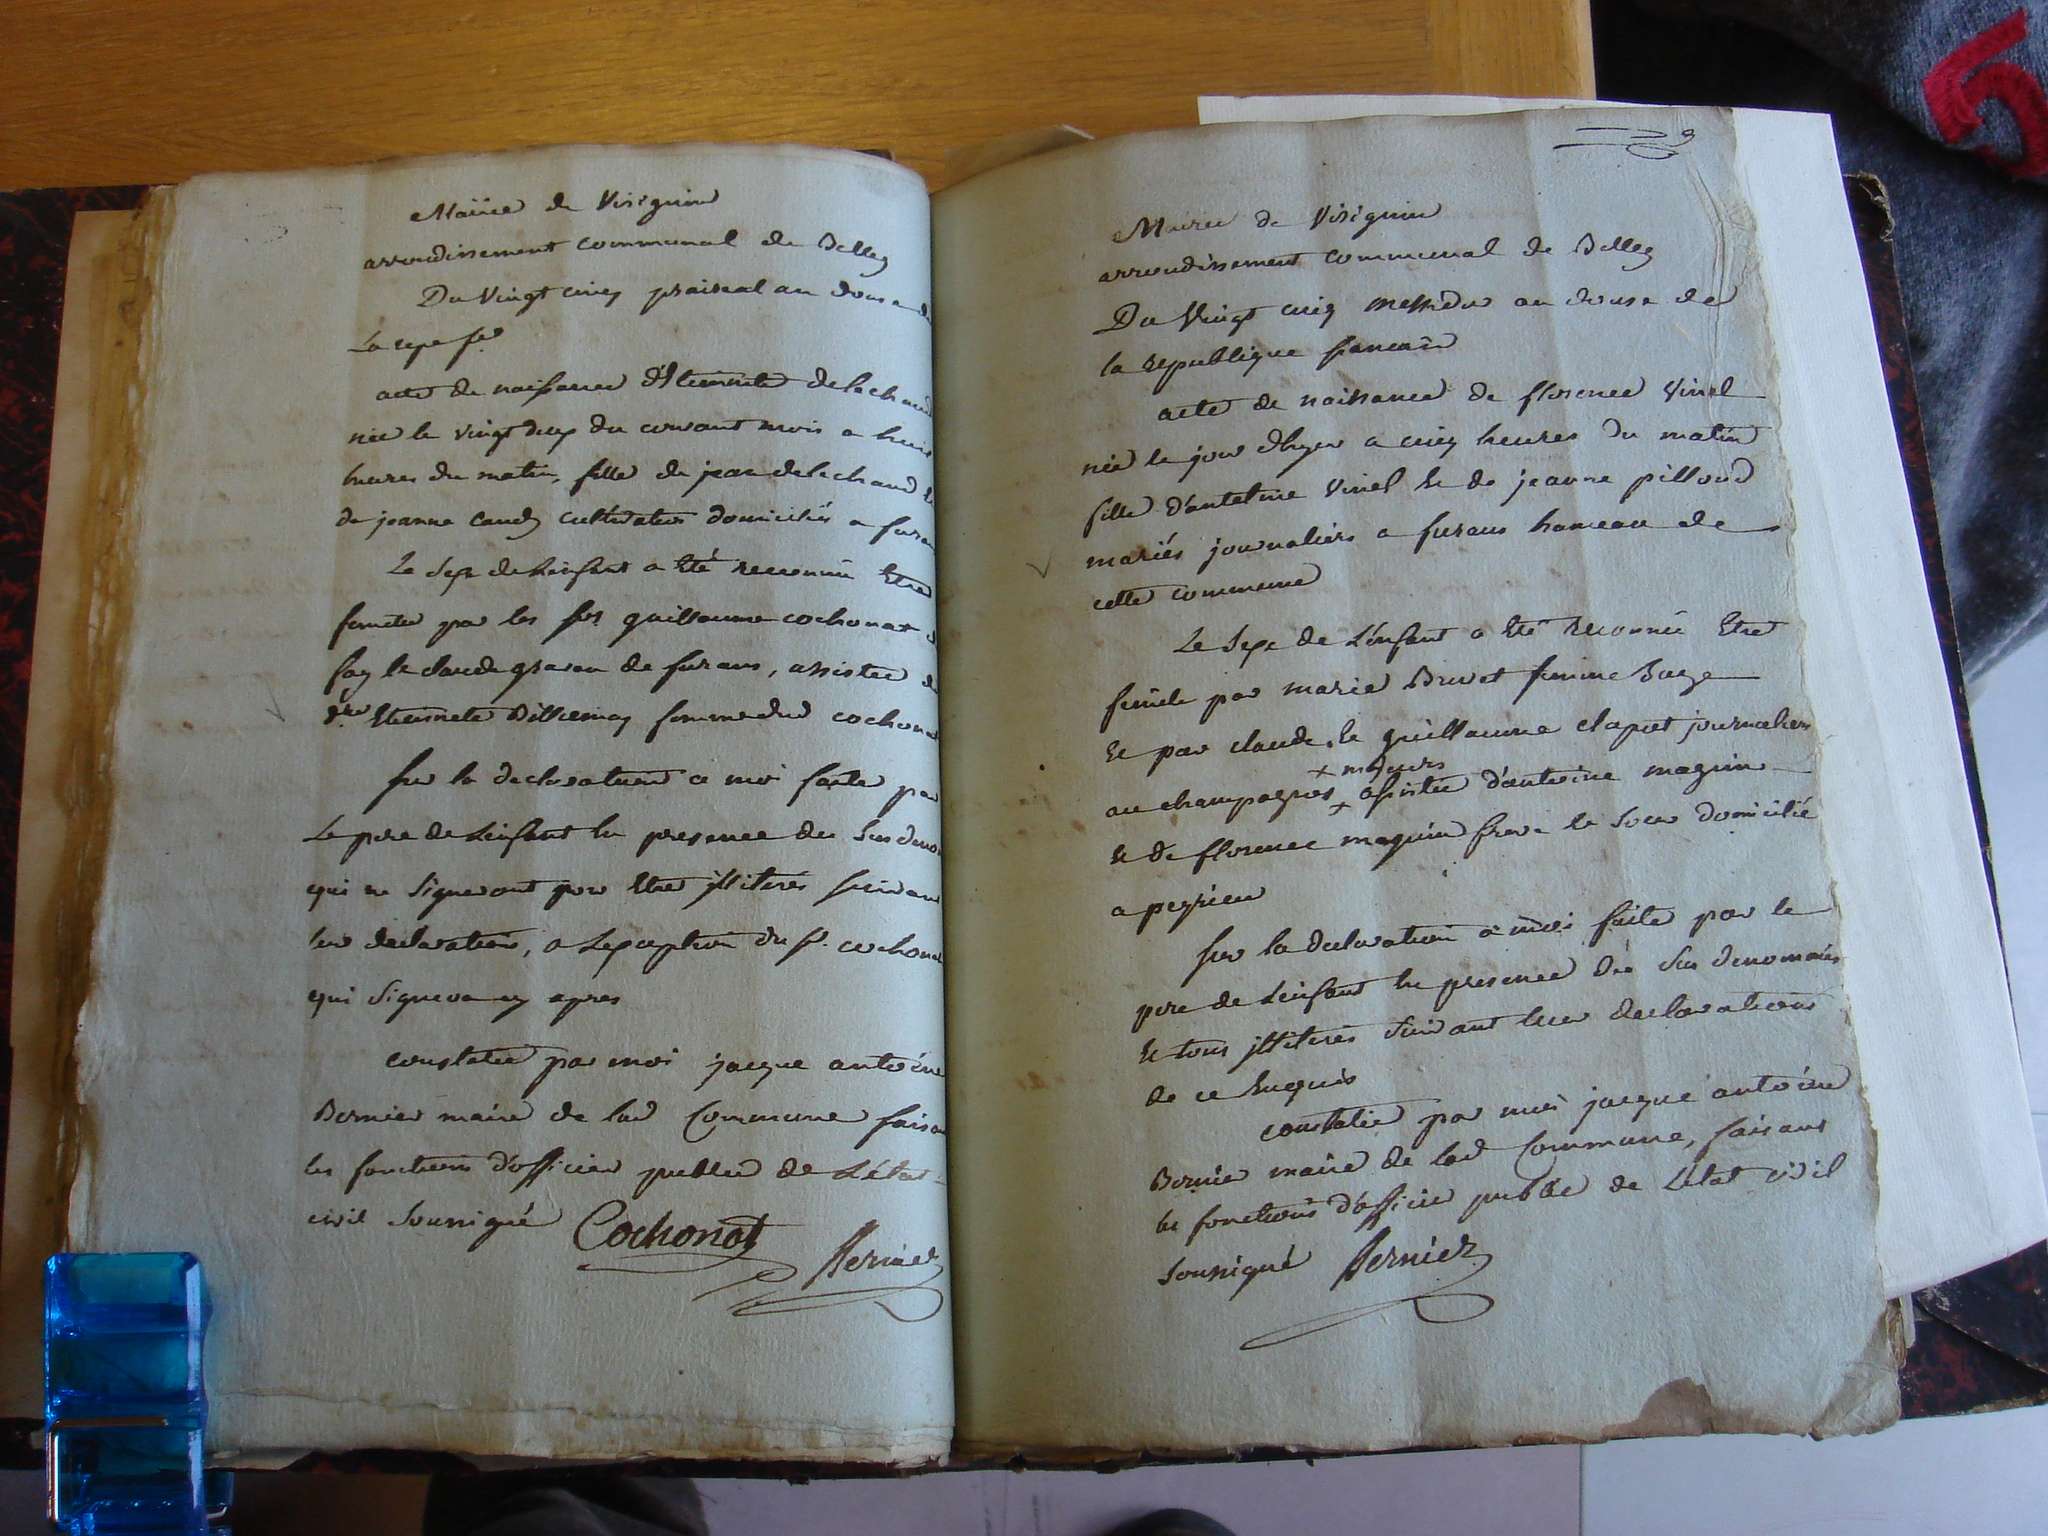 Mairie de Virignin
arrondissement communal de Belley
Du Vingt cinq prairial an douse de
La repe fse
acte de naissance d'Etiennete delechaud
née le vingt deux du courant mois a huit
heures du matin, fille de jean delechaud et
de jeanne caudy cultivateurs domiciliés a furan
Le Sexe de Lenfant a été reconnu Etre
femele par les srs guillaume cochonat d
fay et claude de furans, assistée de
dre Etiennete Billiemaz femme dud cochonat
sur la declaration a moi faite par
Le pere de Lenfant en presence des Susdeno
qui ne Signeront pour Etre illiterés suivan
leur declaration, a Lexception du sr. cochonat
qui Signera cy apres
constatée par moi jacque antoine
Bernier maire de lad Commune faisan
les fonctions d'officier public de L'état
civil Soussigné Cochonat
Bernier
9
Mairie de Virignin
arrondissement communal de Belley
Du Vingt cinq messidor an douse de
la republique francaise
acte de naissance de florence Vinel
née le jour d'hyer a cinq heures du matin
fille d'antelme Vinel et de jeanne pilloud
mariés journaliers a furans hameau de
cette commune
Le Sexe de L'enfant a été reconnu Etre
femele par marie Brevet femme
et par claude et guillaume clapet journaliers
x majeurs
au champagnes x assistée d'antoine maguin
et de florence maguin frere et Soeur domiciliés
a peyrieu
sur la declaration a moi faite par le
pere de Lenfant en presence des Sus denommés
et tous illiterés Suivant leur declarations
de ce Enquis
constatée par moi jacque antoine
Bernier maire de lad Commune, faisant
les fonctions d'officier public de L'état civil
Soussigné Bernier